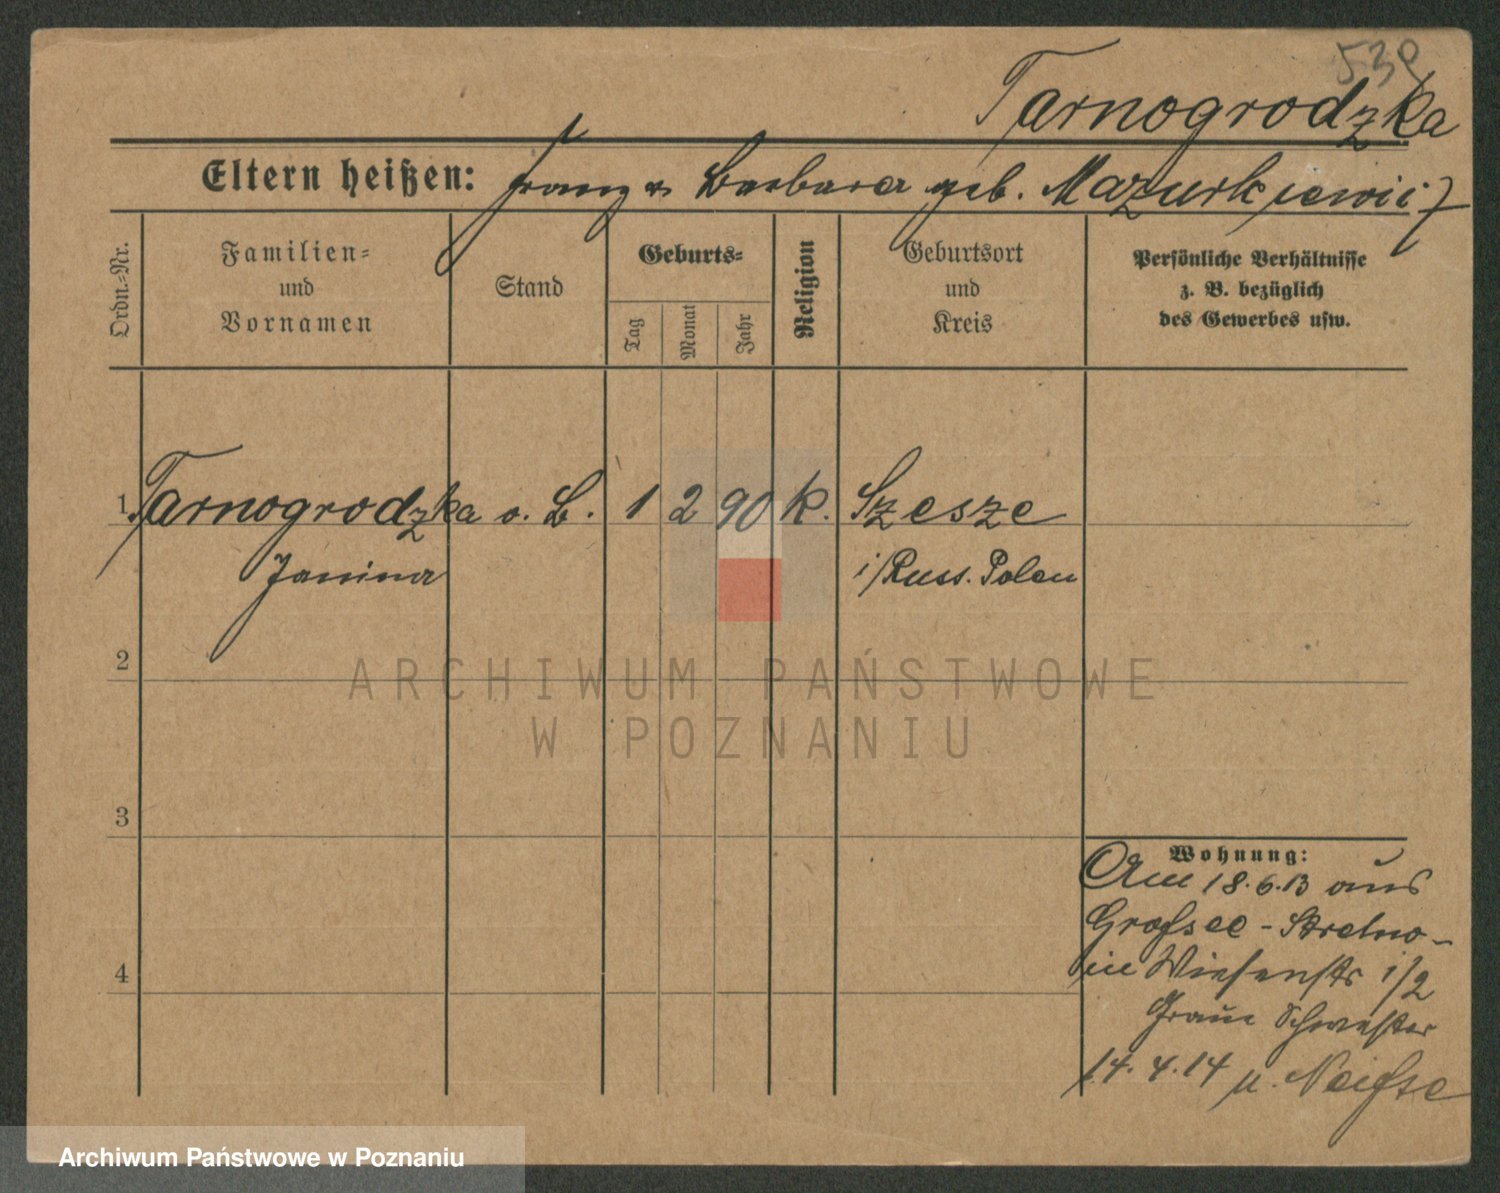 530
Tarnogrodzka
Eltern heißen: Franz u. Barbara geb. Mazurkiewicz
Ordn.=Nr.
Familien=
und
Vornamen
Stand
Geburts=
Tag
Monat
Jahr
Religion
Geburtsort
und
Kreis
Persönliche Verhältnisse
z. B. bezüglich
des Gewerbes usw.
1 Tarnogrodzka o. B. 1 2 90 k. Szesze
Janina i/Russ. Polen
2
3
4
Wohnung:
Am 18.6.13 aus
Grofsee - Strelno -
in Wiesenstr 1/2
Graue Schwester
14.4.14 u. Neifse
ARCHIWUM PAŃSTWOWE
W POZNANIU
Archiwum Państwowe w Poznaniu